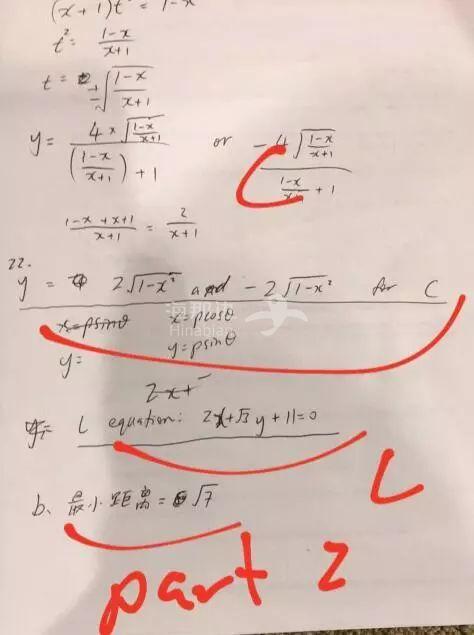 (x+1)t² = 1-x
t² = (1-x)/(x+1)
t = ±√((1-x)/(x+1))
y = (4×√((1-x)/(x+1)))/(((1-x)/(x+1))+1) or (-4√((1-x)/(x+1)))/((1-x)/(x+1)+1)
(1-x+x+1)/(x+1) = 2/(x+1)
22.
y = 2√(1-x²) and -2√(1-x²) for C
x=ρsinθ x=ρcosθ
y= y=ρsinθ
2x+
L equation: 2x+√3 y+11=0
L
b、最小距离=√7
part 2
海那边
Hinabian